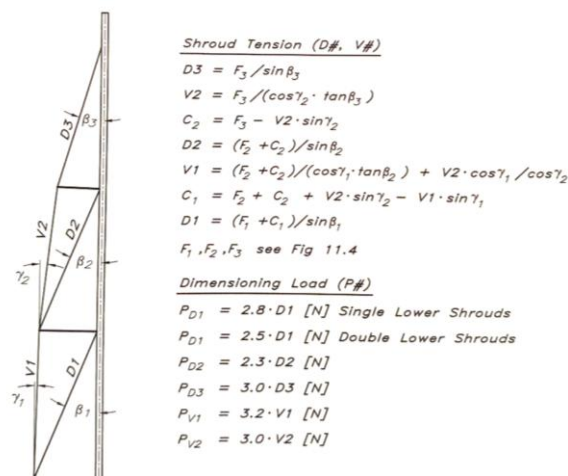 Shroud Tension (D#, V#)
D3 = F₃/sinβ₃
V2 = F₃/(cosγ₂· tanβ₃)
C₂ = F₃ – V2·sinγ₂
D2 = (F₂ +C₂)/sinβ₂
V1 = (F₂ +C₂)/(cosγ₁·tanβ₂) + V2·cosγ₁/cosγ₂
C₁ = F₂ + C₂ + V2·sinγ₂ – V1·sinγ₁
D1 = (F₁ +C₁)/sinβ₁
F₁ ,F₂ ,F₃ see Fig 11.4
Dimensioning Load (P#)
P_D1 = 2.8·D1 [N] Single Lower Shrouds
P_D1 = 2.5·D1 [N] Double Lower Shrouds
P_D2 = 2.3·D2 [N]
P_D3 = 3.0·D3 [N]
P_V1 = 3.2·V1 [N]
P_V2 = 3.0·V2 [N]
D3
β₃
V2
D2
γ₂
β₂
V1
D1
γ₁
β₁